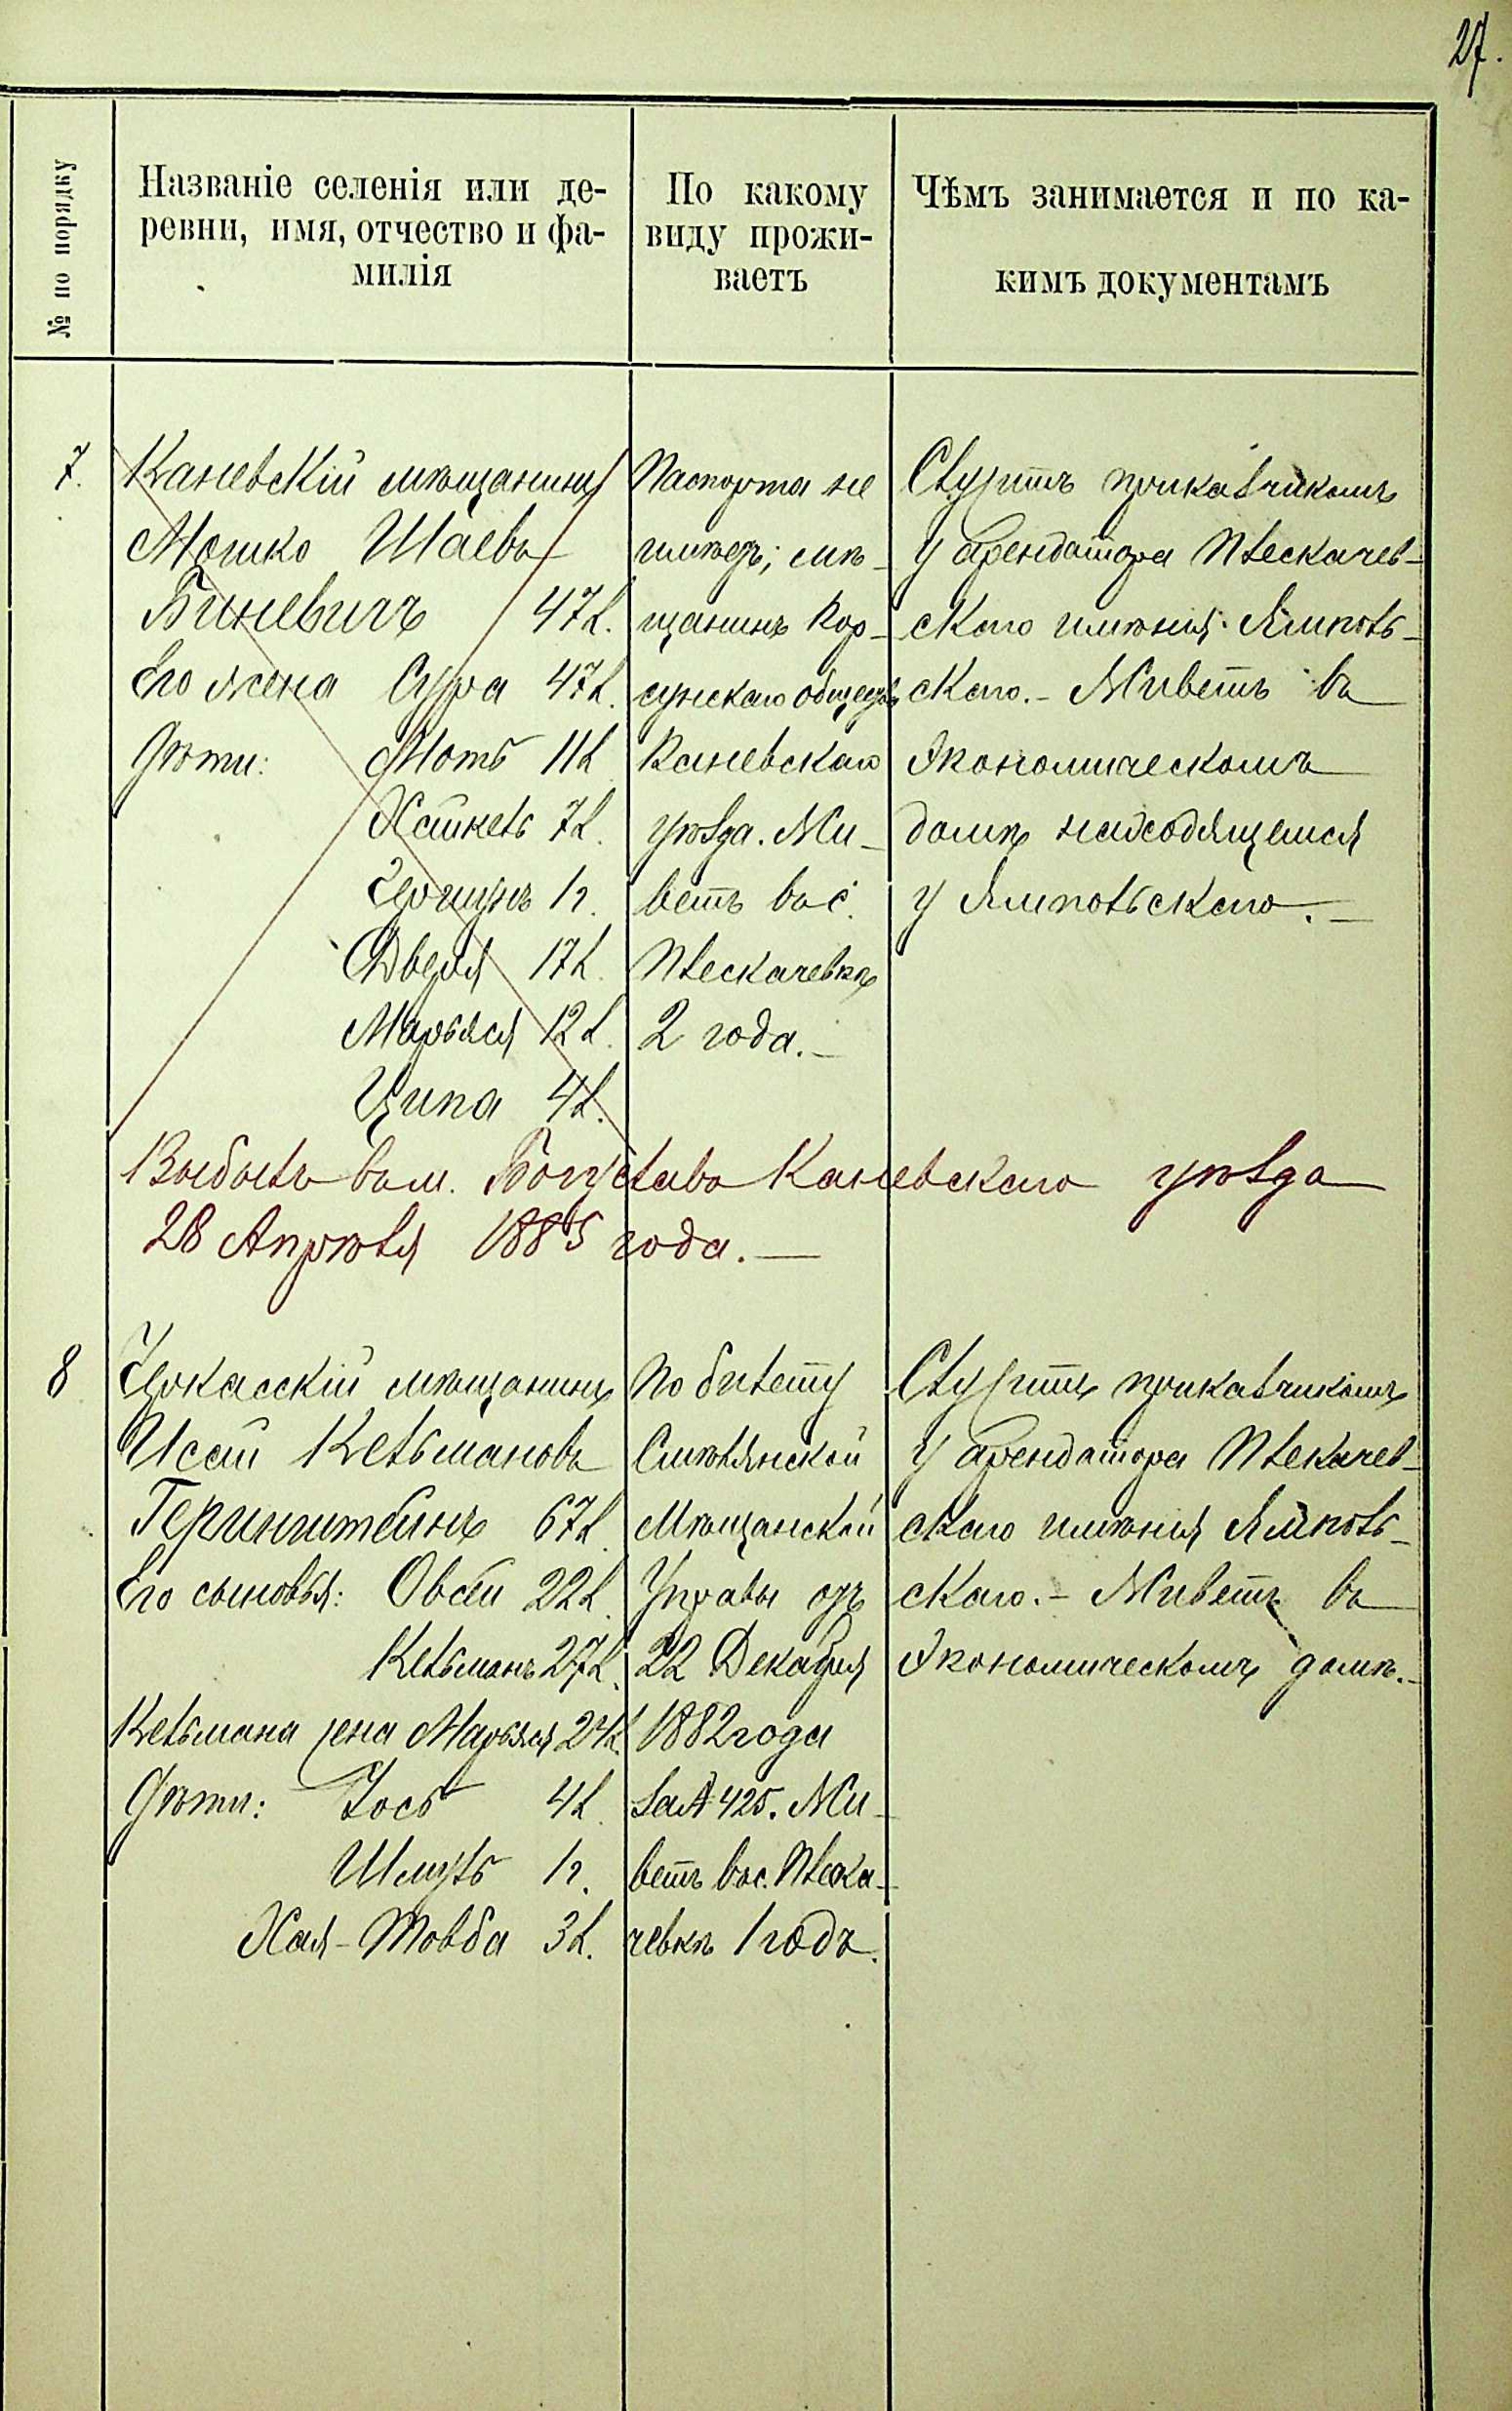 27.
№ по порядку
Названіе селенія или де-
ревни, имя, отчество и фа-
милія
По какому
виду прожи-
ваетъ
Чѣмъ занимается и по ка-
кимъ документамъ
7.
Каневскій мѣщанинъ
Мошко Шаевъ
Биневичъ 47 л.
Его жена Сура 47 л.
Дѣти: Моть 11 л.
Хайкель 7 л.
1 г.
Двейя 17 л.
Марьяся 12 л.
Ципа 4 л.
Паспорта не
имѣетъ; мѣ-
щанинъ Кор-
сунскаго общества
Каневскаго
уѣзда. Жи-
ветъ въ с.
Плескачевкѣ
2 года.-
Служитъ прикащикомъ
у арендатора Плескачев-
скаго имѣнія Ямполь-
скаго.- Живетъ въ
экономическомъ
домѣ находящемся
у Ямпольскаго.-
Выбылъ въ м. Богуславъ Каневскаго уѣзда
28 Апрѣля 1885 года.—
8
Черкасскій мѣщанинъ
Исай Кельмановъ
Геринштейнъ 67 л.
Его сыновья: Овсей 22 л.
Кельманъ 27 л.
Кельмана жена Марьяся 24 л.
Дѣти: Іось 4 л.
Шмуль 1 г.
Хая-Товба 3 л.
По билету
Смѣлянской
Мѣщанской
Управы отъ
22 Декабря
1882 года
за № 425. Жи-
ветъ въ с. Плеска-
чевкѣ 1 годъ.
Служитъ прикащикомъ
у арендатора Плекачев-
скаго имѣнія Ямполь-
скаго.- Живетъ въ
экономическомъ домѣ.-